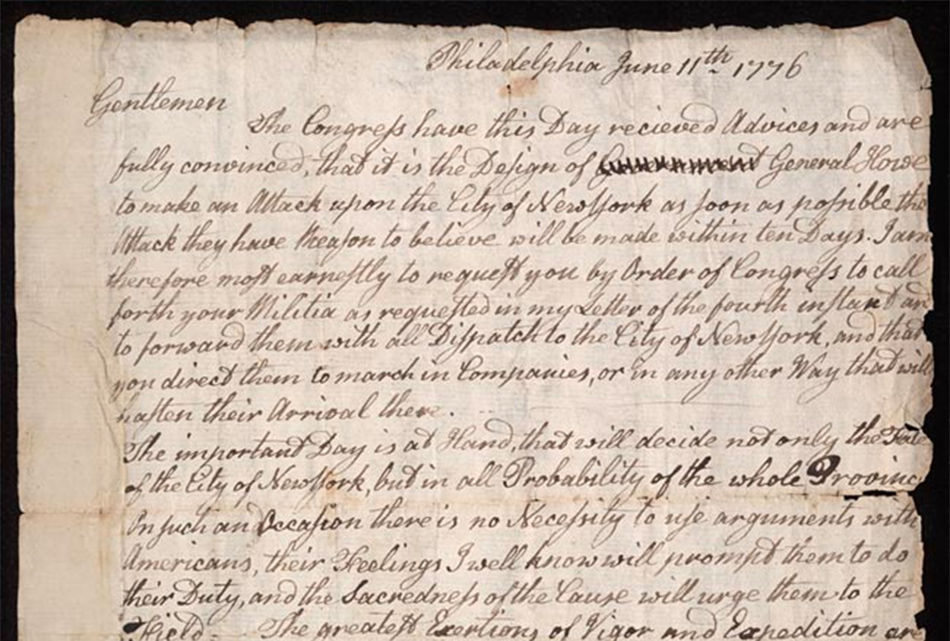 Philadelphia June 11th 1776
Gentlemen
The Congreſs have this Day recieved Advices and are
fully convinced, that it is the Deſign of General Howe
to make an Attack upon the City of New York as ſoon as poſsible the
Attack they have Reaſon to believe will be made within ten Days. I am
therefore moſt earneſtly to requeſt you by Order of Congreſs to call
forth your Militia as requeſted in my Letter of the fourth inſtant and
to forward them with all Diſpatch to the City of New York, and that
you direct them to march in Companies, or in any other Way that will
haſten their Arrival there.
The important Day is at Hand, that will decide not only the Fate
of the City of New York, but in all Probability of the whole Provinc
On ſuch an Occaſion there is no Neceſsity to uſe arguments with
Americans, their Feelings I well know will prompt them to do
their Duty, and the Sacredneſs of the Cauſe will urge them to the
Field. The greateſt Exertions of Vigor and Expedition are